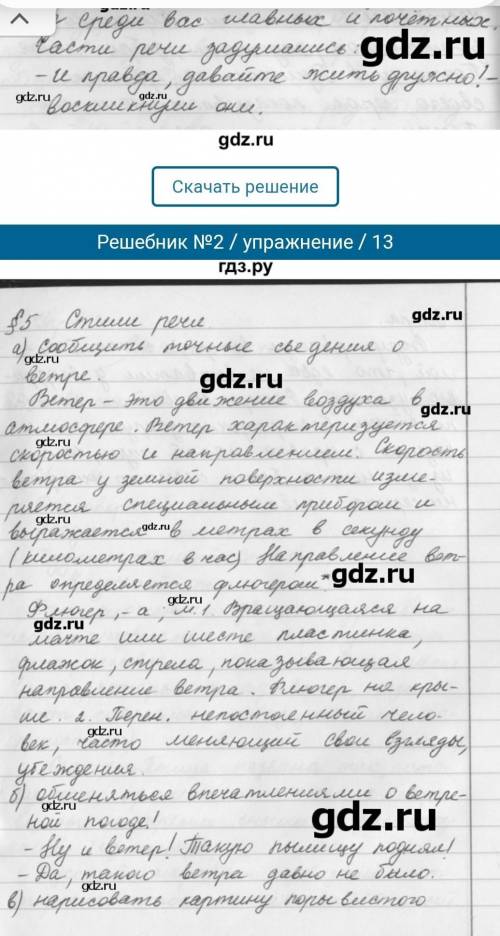 среди вас главных и почётных.
Части речи задумались:
- И правда, давайте жить дружно! -
воскликнули они.
gdz.ru
Скачать решение
Решебник №2 / упражнение / 13
гдз.ру
§5 Стили речи
а) Сообщить точные сведения о
ветре.
Ветер - это движение воздуха в
атмосфере. Ветер характеризуется
скоростью и направлением. Скорость
ветра у земной поверхности изме-
ряется специальным прибором и
выражается в метрах в секунду
(километрах в час) Направление вет-
ра определяется флюгером
Флюгер, -а, м. 1. Вращающаяся на
мачте или шесте пластинка,
флажок, стрела, показывающая
направление ветра. Флюгер на кры-
ше. 2. Перен. непостоянный чело-
век, часто меняющий свои взгляды,
убеждения.
б) обменяться впечатлениями о ветре-
ной погоде!
- Ну и ветер! Такую пылищу поднял!
- Да, такого ветра давно не было.
в) нарисовать картину порывистого